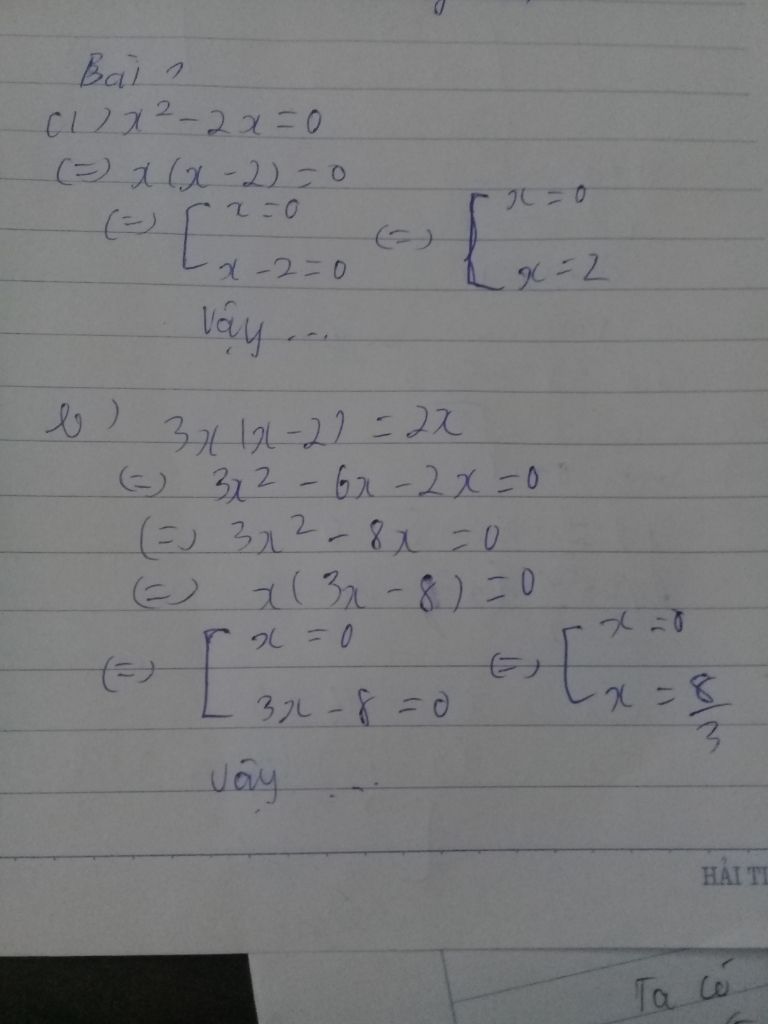 Bài 2
a) x² - 2x = 0
(=) x(x - 2) = 0
(=) [ x = 0 (=) [ x = 0
x - 2 = 0 x = 2
Vậy ...
b) 3x(x-2) = 2x
(=) 3x² - 6x - 2x = 0
(=) 3x² - 8x = 0
(=) x(3x - 8) = 0
(=) [ x = 0 (=) [ x = 0
3x - 8 = 0 x = 8/3
Vậy ...
HẢI TI
Ta có